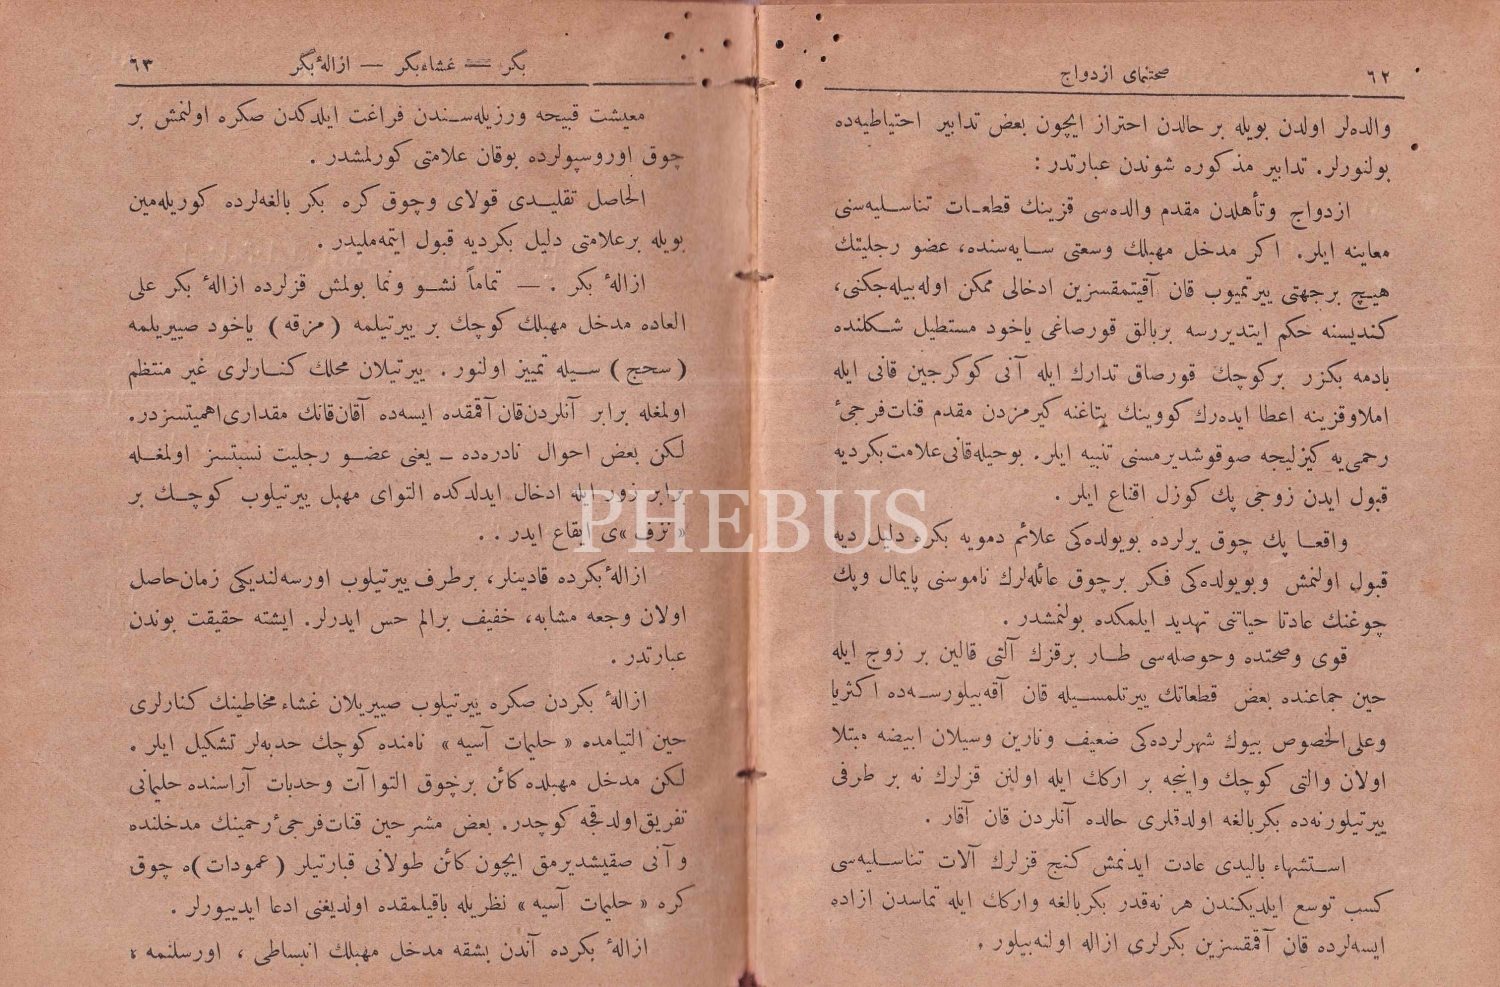 ٦٢
صحتنمای ازدواج
والده‌لر اولدن بویله بر حالدن احتراز ایچون بعض تدابیر احتیاطیه‌ده
بولنورلر. تدابیر مذکوره شوندن عبارتدر :
ازدواج وتأهلدن مقدم والده‌سی قزینك قطعات تناسلیه‌سنی
معاینه ایلر. اکر مدخل مهبلك وسعتی سایه‌سنده، عضو رجلیتك
هیچ برجهتی ییرتمیوب قان آقیتمقسزین ادخالی ممکن اوله‌بیله‌جکنی،
کندیسنه حکم ایتدیررسه بربالق قورصاغی یاخود مستطیل شکلنده
بادمه بکزر برکوچك قورصاق تدارك ایله آنی کوکرجین قانی ایله
املاوقزینه اعطا ایده‌رك کووینك یتاغنه کیرمزدن مقدم قنات‌فرجیٔ
رحمی‌یه کیزلیجه صوقوشدیرمسنی تنبیه ایلر. بوحیله‌قانی‌علامت‌بکردیه
قبول ایدن زوجی پك کوزل اقناع ایلر .
واقعا پك چوق یرلرده بویولده‌کی علائم دمویه بکره دلیل دیه
قبول اولنمش وبویولده‌کی فکر برچوق عائله‌لرك ناموسنی پایمال وپك
چوغنك عادتا حیاتنی تهدید ایلمکده بولنمشدر .
قوی وصحتده وحوصله‌سی طار برقزك آلتی قالین بر زوج ایله
حین جماعنده بعض قطعاتك ییرتلمسیله قان آقه‌بیلورسه‌ده اکثریا
وعلی‌الخصوص بیوك شهرلرده‌کی ضعیف ونارین وسیلان ابیضه مبتلا
اولان والتی کوچك وانیجه بر ارکك ایله اولنن قزلرك نه بر طرفی
ییرتیلورنه‌ده بکربالغه اولدقلری حالده آنلردن قان آقار .
استشهاء بالیدی عادت ایدنمش کنج قزلرك آلات تناسلیه‌سی
کسب توسع ایلدیکندن هر نه‌قدر بکربالغه وارکك ایله تماسدن ازاده
ایسه‌لرده قان آقمقسزین بکرلری ازاله اولنه‌بیلور .
بکر = غشاءبکر — ازالهٔ بکر
٦٣
معیشت قبیحه ورزیله‌سندن فراغت ایلدکدن صکره اولنمش بر
چوق اوروسپولرده بوقان علامتی کورلمشدر .
الحاصل تقلیدی قولای وچوق کره بکر بالغه‌لرده کوریله‌مین
بویله برعلامتی دلیل بکردیه قبول ایتمه‌ملیدر .
ازالهٔ بکر . — تماماً نشو ونما بولمش قزلرده ازالهٔ بکر علی
العاده مدخل مهبلك کوچك بر ییرتیلمه (مزقه) یاخود صییریلمه
(سحج) سیله تمییز اولنور . ییرتیلان محلك کنارلری غیر منتظم
اولمغله برابر آنلردن‌قان آقمقده ایسه‌ده آقان‌قانك مقداری‌اهمیتسزدر.
لکن بعض احوال نادره‌ده ـ یعنی عضو رجلیت نسبتسز اولمغله
برابر زور ایله ادخال ایدلدکده التوای مهبل ییرتیلوب کوچك بر
«نزف»ی ایقاع ایدر . .
ازالهٔ بکرده قادینلر، برطرف ییرتیلوب اورسه‌لندیکی زمان‌حاصل
اولان وجعه مشابه، خفیف برالم حس ایدرلر. ایشته حقیقت بوندن
عبارتدر .
ازالهٔ بکردن صکره ییرتیلوب صییریلان غشاء مخاطینك کنارلری
حین التیامده «حلیمات آسیه» نامنده کوچك حدبه‌لر تشکیل ایلر .
لکن مدخل مهبلده کائن برچوق التواآت وحدبات آراسنده حلیماتی
تفریق‌اولدقجه کوچدر. بعض مشرحین قنات‌فرجیٔ‌رحمینك مدخلنده
و آنی صقیشدیرمق ایچون کائن طولانی قبارتیلر (عمودات)ه چوق
کره «حلیمات آسیه» نظریله باقیلمقده اولدیغنی ادعا ایدییورلر .
ازالهٔ بکرده آندن بشقه مدخل مهبلك انبساطی ، اورسلنمه ،
PHEBUS